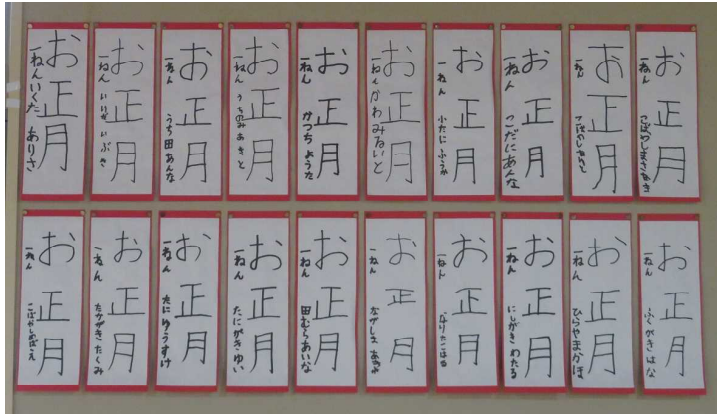 お正月
一ねん いくた ありさ
お正月
一ねん いいづか いぶき
お正月
一ねん うち田 あんな
お正月
一ねん うちのみ あきと
お正月
一ねん かつち ようた
お正月
一ねん かわみ るいと
お正月
一ねん 小たに ふうか
お正月
一ねん こだに あんな
お正月
一ねん こばやし
お正月
一ねん こばやし まさあき
お正月
一ねん こばやし
お正月
一ねん たかがき たくみ
お正月
一ねん たに ゆうすけ
お正月
一ねん たにがき ゆい
お正月
一ねん 田むら あいな
お正月
一ねん ながしま
お正月
一ねん なりた こはる
お正月
一ねん にしがき わたる
お正月
一ねん ひらやま かほ
お正月
一ねん ふくがき はな